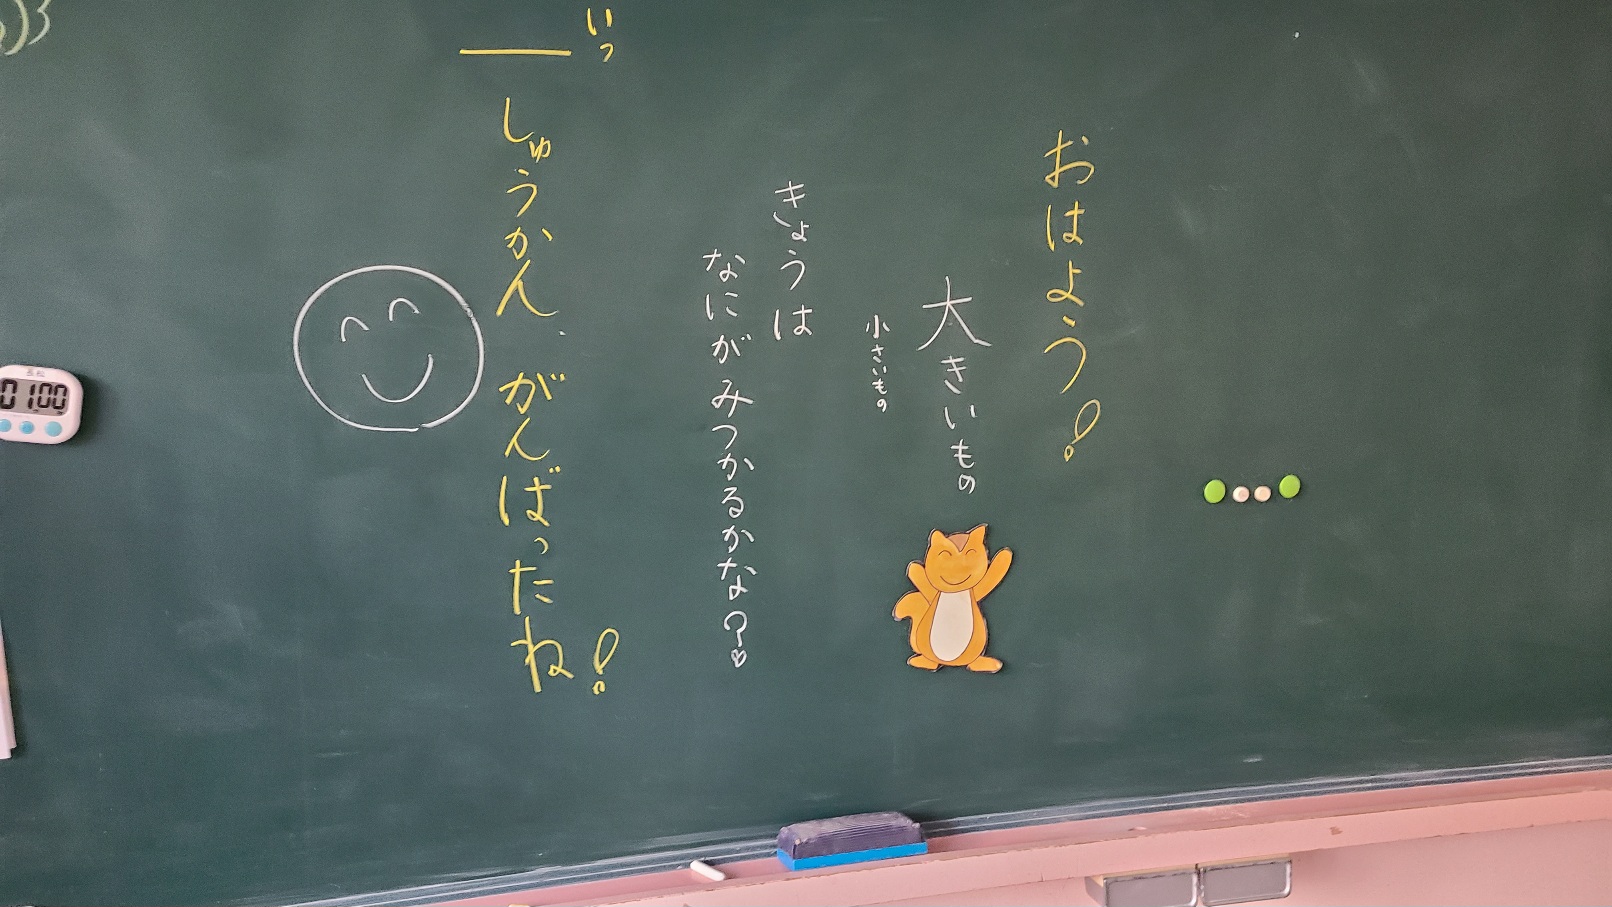 おはよう!
大きいもの
小さいもの
きょうは
なにがみつかるかな?
一しゅうかん、がんばったね!
いっ
0100